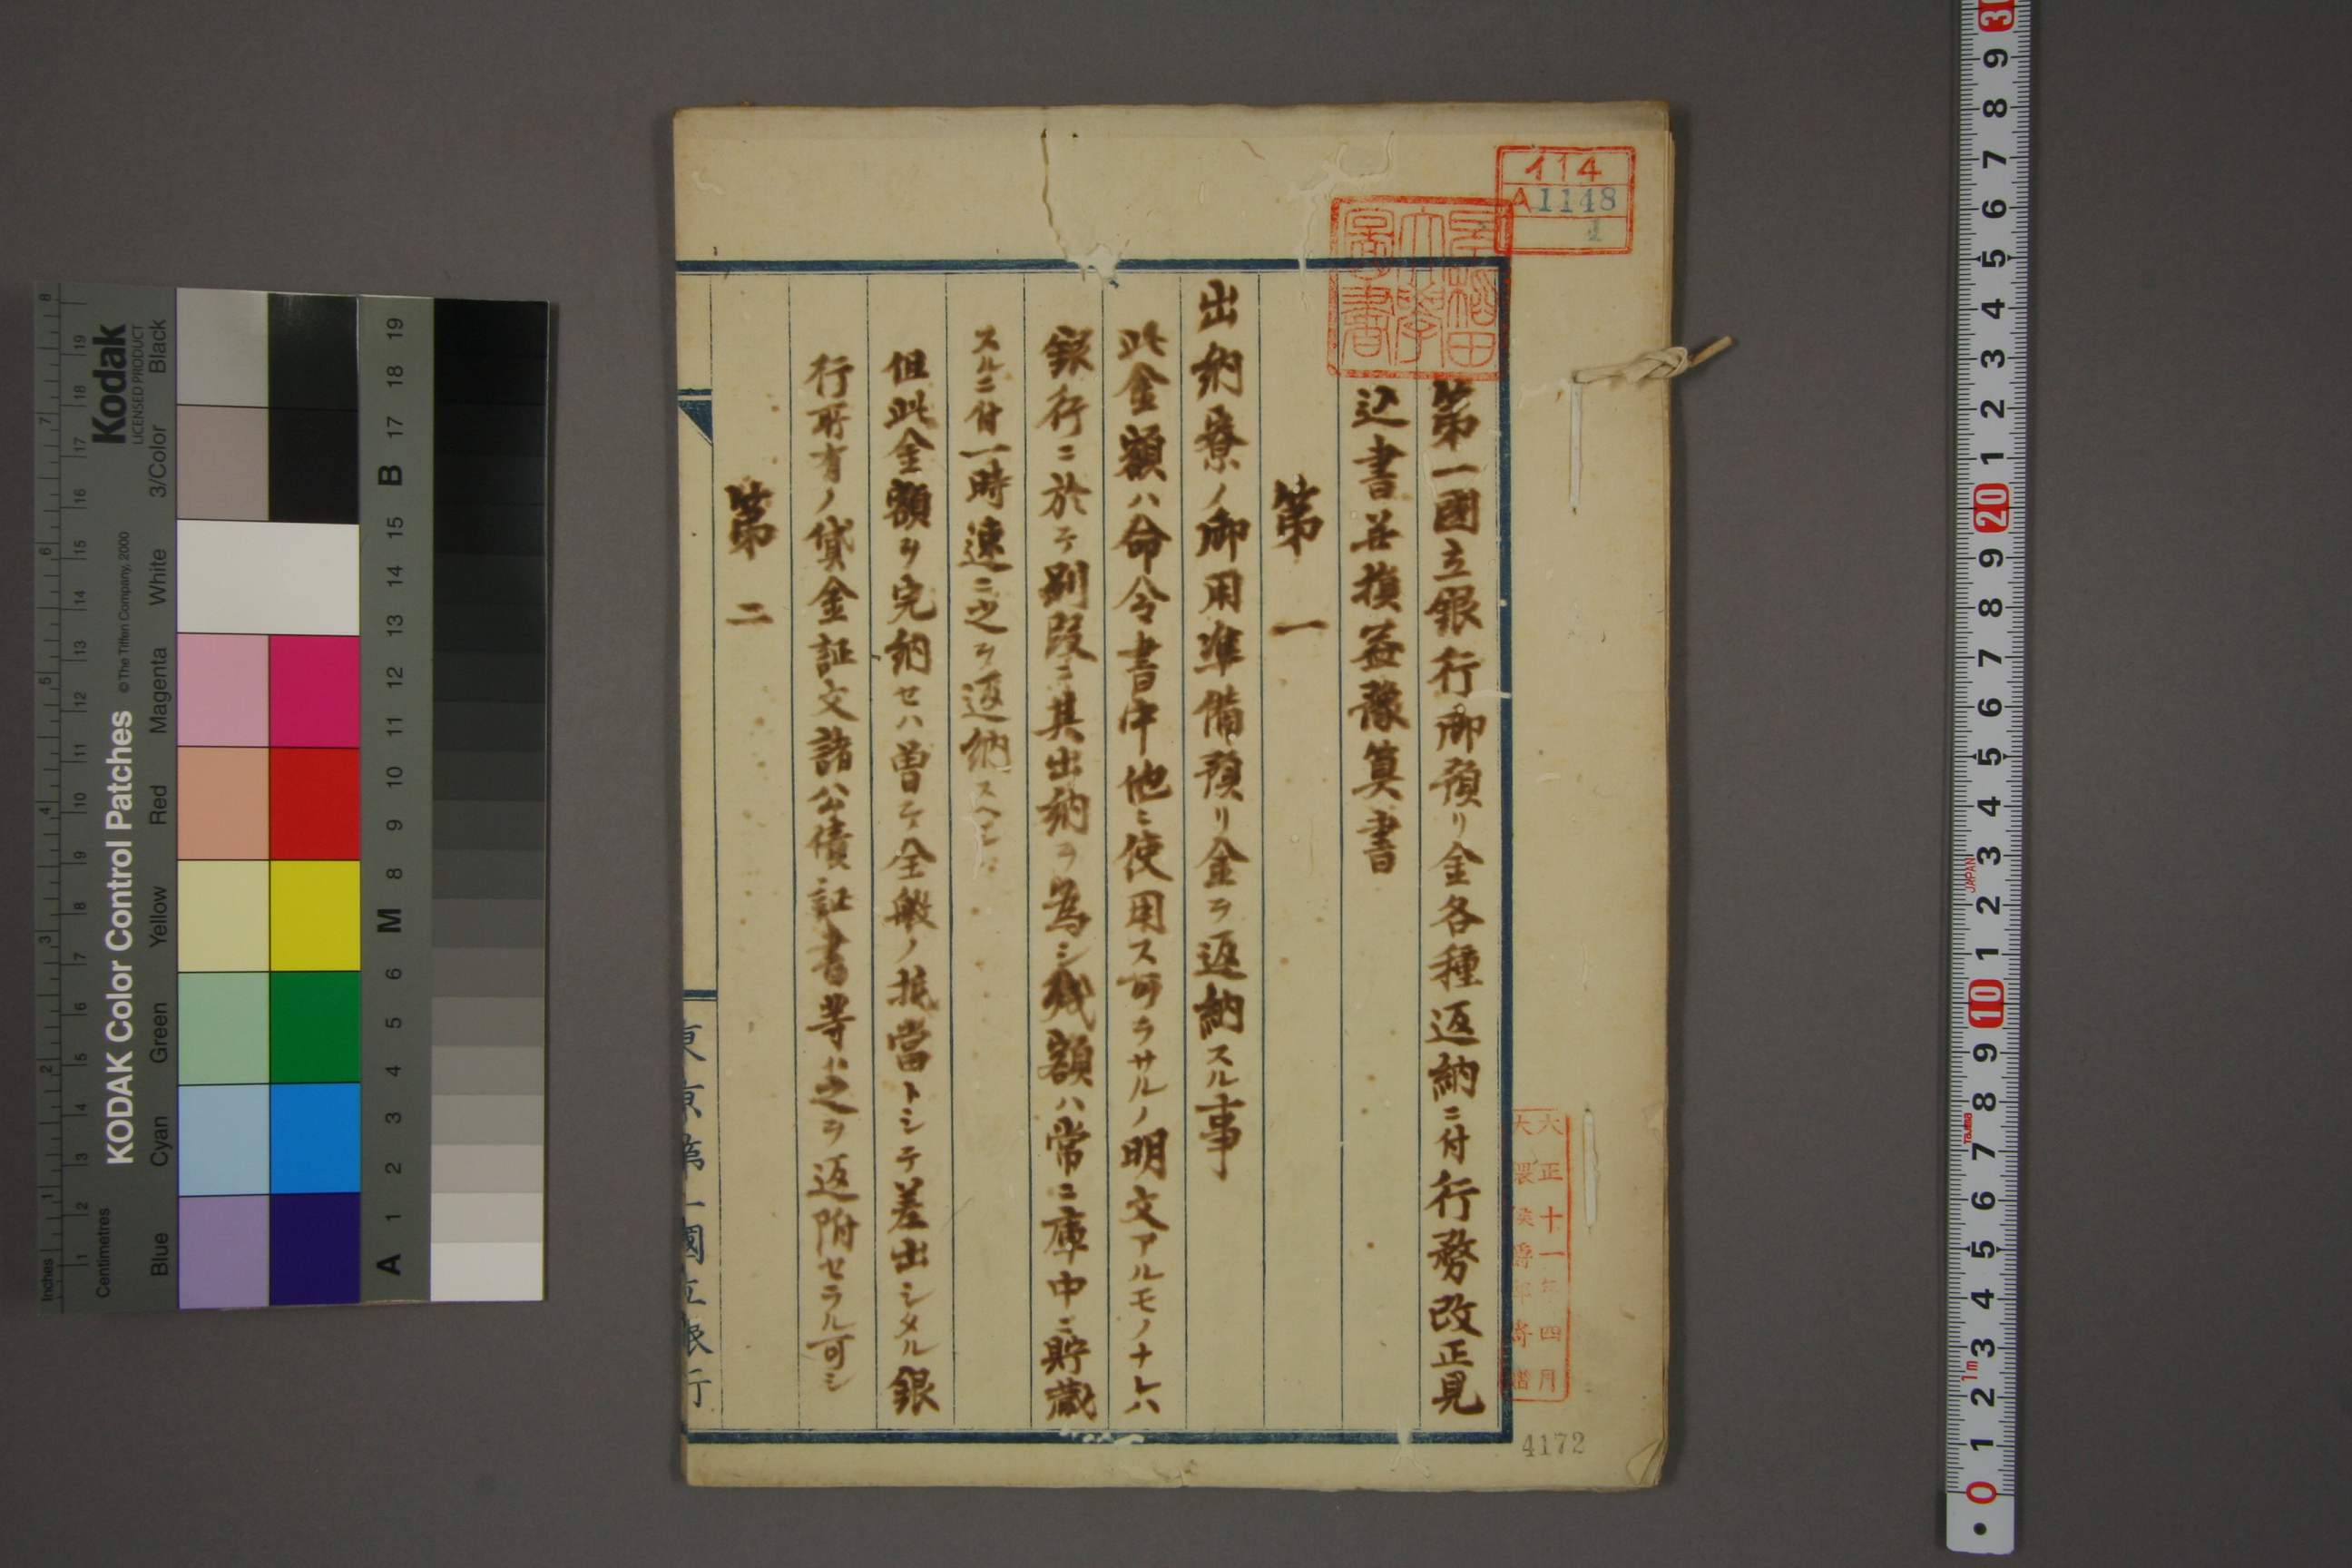 第一國立銀行御預リ金各種返納ニ付行務改正見
込書并損益豫算書
第一
出納寮ノ御用準備預リ金ヲ返納スル事
此金額ハ命令書中他ニ使用ス可ラサルノ明文アルモノナレハ
銀行ニ於テ別段ニ其出納ヲ為シ残額ハ常ニ庫中ニ貯蔵
スルニ付一時速ニ之ヲ返納スヘシ
但此金額ヲ完納セハ曽テ全般ノ抵當トシテ差出シタル銀
行所有ノ貸金証文諸公債証書等ハ之ヲ返附セラル可シ
第二
東京第一國立銀行
イ14
A1148
1
早稲田大學圖書
大正十一年四月
大隈侯爵家寄贈
4172
KODAK Color Control Patches
© The Tiffen Company, 2000
Kodak
LICENSED PRODUCT
Inches
Centimetres
Blue
Cyan
Green
Yellow
Red
Magenta
White
3/Color
Black
A 1 2 3 4 5 6 M 8 9 10 11 12 13 14 15 B 17 18 19
JAPAN
Tajima
1m